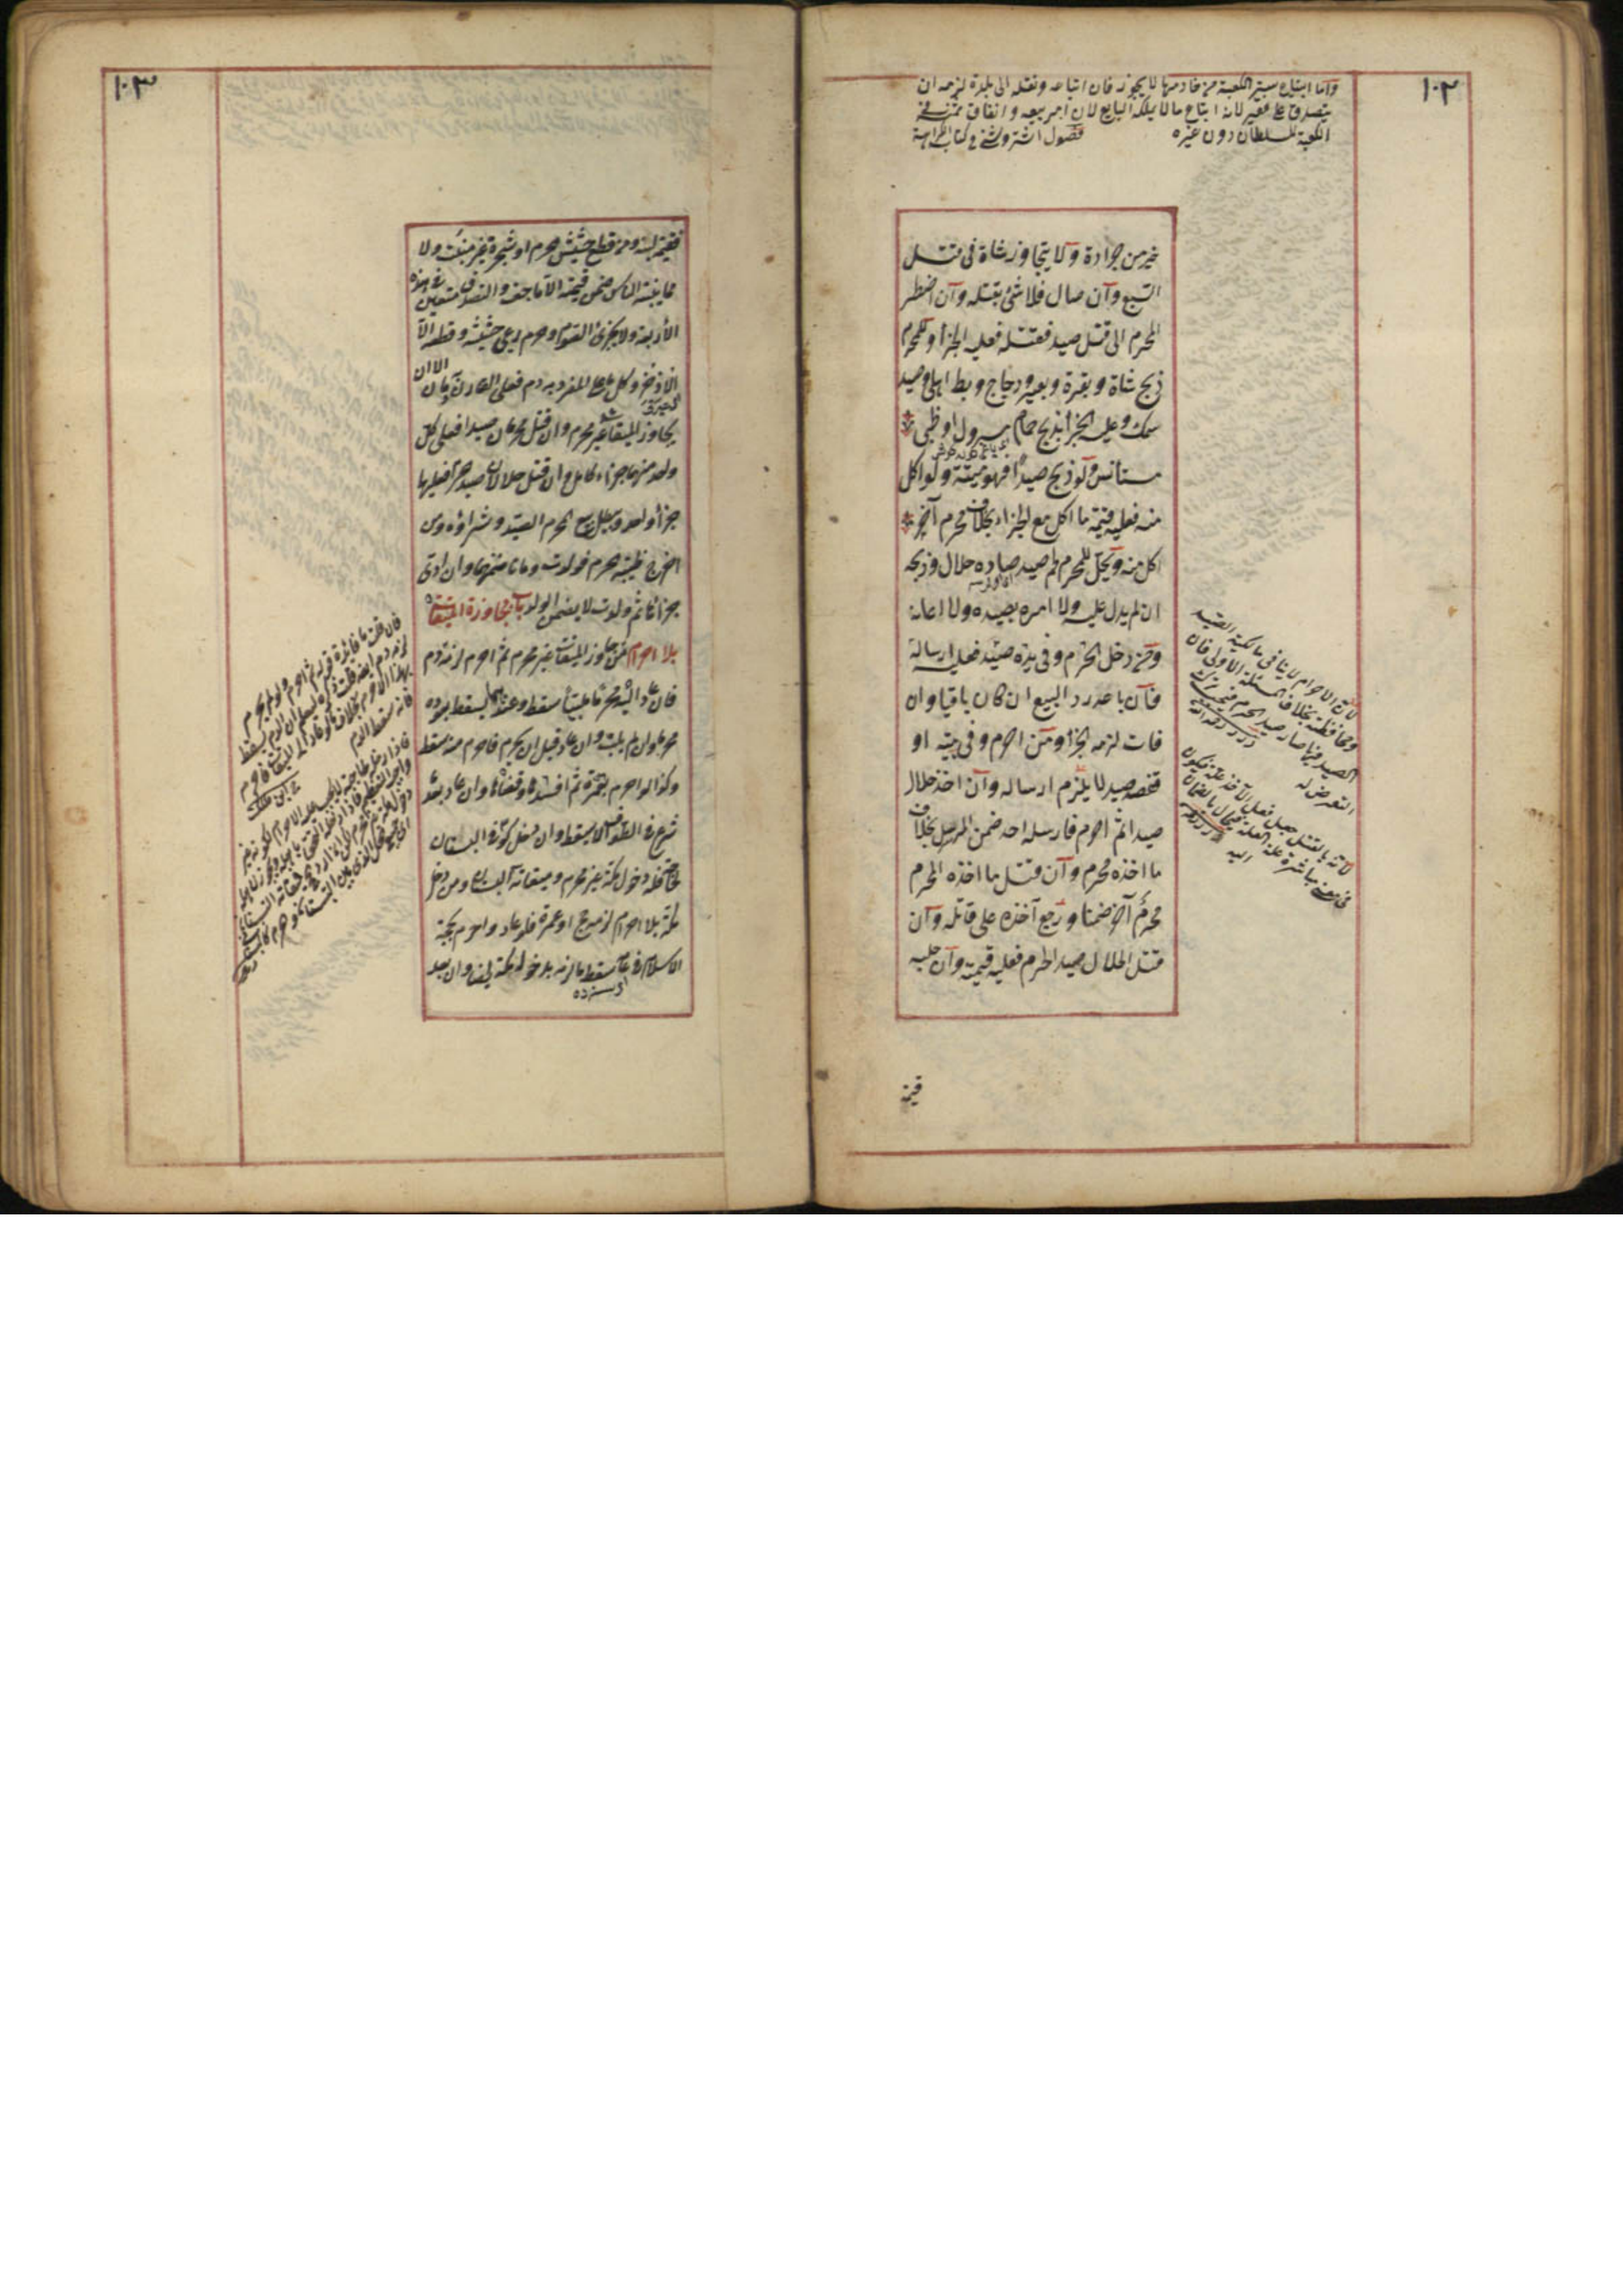 ١٠٢
واما ابتياع ستر الكعبة من خادمها لا يجوز فان ابتاعه ونقله الى بلدة لزمه ان
يتصدق على فقير لانه ابتاع ما لا يملكه البايع لان امر بيعه وانفاق ثمنه في
الكعبة للسلطان دون غيره فصول اشتروشني في كتاب الكراهية
خير من جرادة ولا يتجاوز شاة في قتل
السبع وان صال فلا شئ بقتله وان اضطر
المحرم الى قتل صيد فقتله فعليه الجزأ وللمحرم
ذبح شاة وبقرة وبعير ودجاج وبط اهلي وصيد
سمك وعليه الجزأ بذبح حمام مسرول او ظبى
مستأنس ولو ذبح صيدا فهو ميتة ولو اكل
منه فعليه قيمة ما اكل مع الجزاء بخلاف محرم آخر
اكل منه ويحل للمحرم لحم صيد صاده حلال وذبحه
ان لم يدل عليه ولا امره بصيده ولا اعانه
ومن دخل الحرم وفى يده صيد فعليه ارساله
فان باعه رد البيع ان كان باقيا وان
فات لزمه الجزأ ومن احرم وفى بيته او
قفصه صيد لا يلزم ارساله وان اخذ حلال
صيدا ثم احرم فارسله احد ضمن المرسل بخلاف
ما اخذه محرم وان قتل ما اخذه المحرم
محرم آخر ضمنا ورجع آخذه على قاتله وان
قتل الحلال صيد الحرم فعليه قيمته وان حلبه
قيمة
لان الاحرام لا ينافى مالكية الصيد
ومحافظته بخلاف المسئلة الاولى فان
الصيد فيها صار صيد الحرم فيجب ترك
التعرض له
لانه بالقتل جعل فعل الآخذ علة فيكون
فى معنى مباشرة علة العلة فيحال بالضمان
اليه
١٠٣
فقيمة لبنه ومن قطع حشيش الحرم او شجرة غير منبت ولا
مما ينبته الناس ضمن قيمته الا ما جف والتصدق متعين في هذه
الاربعة ولا يجزئ الصوم وحرم رعى حشيشه وقطعه الا
الاذخر وكل ما على المفرد به دم فعلى القارن دمان الا ان
يجاوز الميقات غير محرم وان قتل محرمان صيدا فعلى كل
واحد منهما جزاء كامل وان قتل حلالان صيد حرم فعليهما
جزأ واحد وبطل بيع المحرم الصيد وشراؤه ومن
اخرج ظبية الحرم فولدت وماتا ضمنهما وان ادى
جزائها ثم ولدت لا يضمن الولد باب مجاوزة الميقات
بلا احرام من جاوز الميقات غير محرم ثم احرم لزمه دم
فان عاد اليه محرما ملبيا سقط وعندهما يسقط بعوده
محرما وان لم يلب وان عاد قبل ان يحرم فاحرم منه سقط
وكذا لو احرم بعمرة ثم افسدها وقضاها وان عاد بعد ما
شرع في الطواف لا يسقط وان دخل كوفي البستان
لحاجة فله دخول مكة غير محرم وميقاته البستان ومن دخل
مكة بلا احرام لزمه حج او عمرة فلو عاد واحرم بحجة
الاسلام في عامه سقط ما لزمه بدخول مكة ايضا وان بعد
فان قلت ما فائدة قوله ثم احرم ولو لم يحرم
فانه سقط الدم
ابن ملك